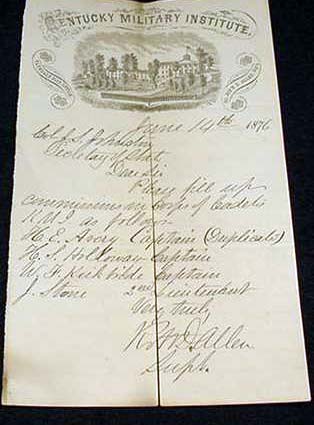 KENTUCKY MILITARY INSTITUTE.
June 14th 1876
Col J. S. Johnston
Secretary of Stat
Dear Sir
Please fill up
commissions in Corps of Cadets
K.M.I as follows
H. E. Avery Captain (Duplicate)
H. S. Holloway Captain
W. F. Kirkbride Captain
J. Stone 2nd Lieutenant
Very truly
Robt D. Allen
Supt.